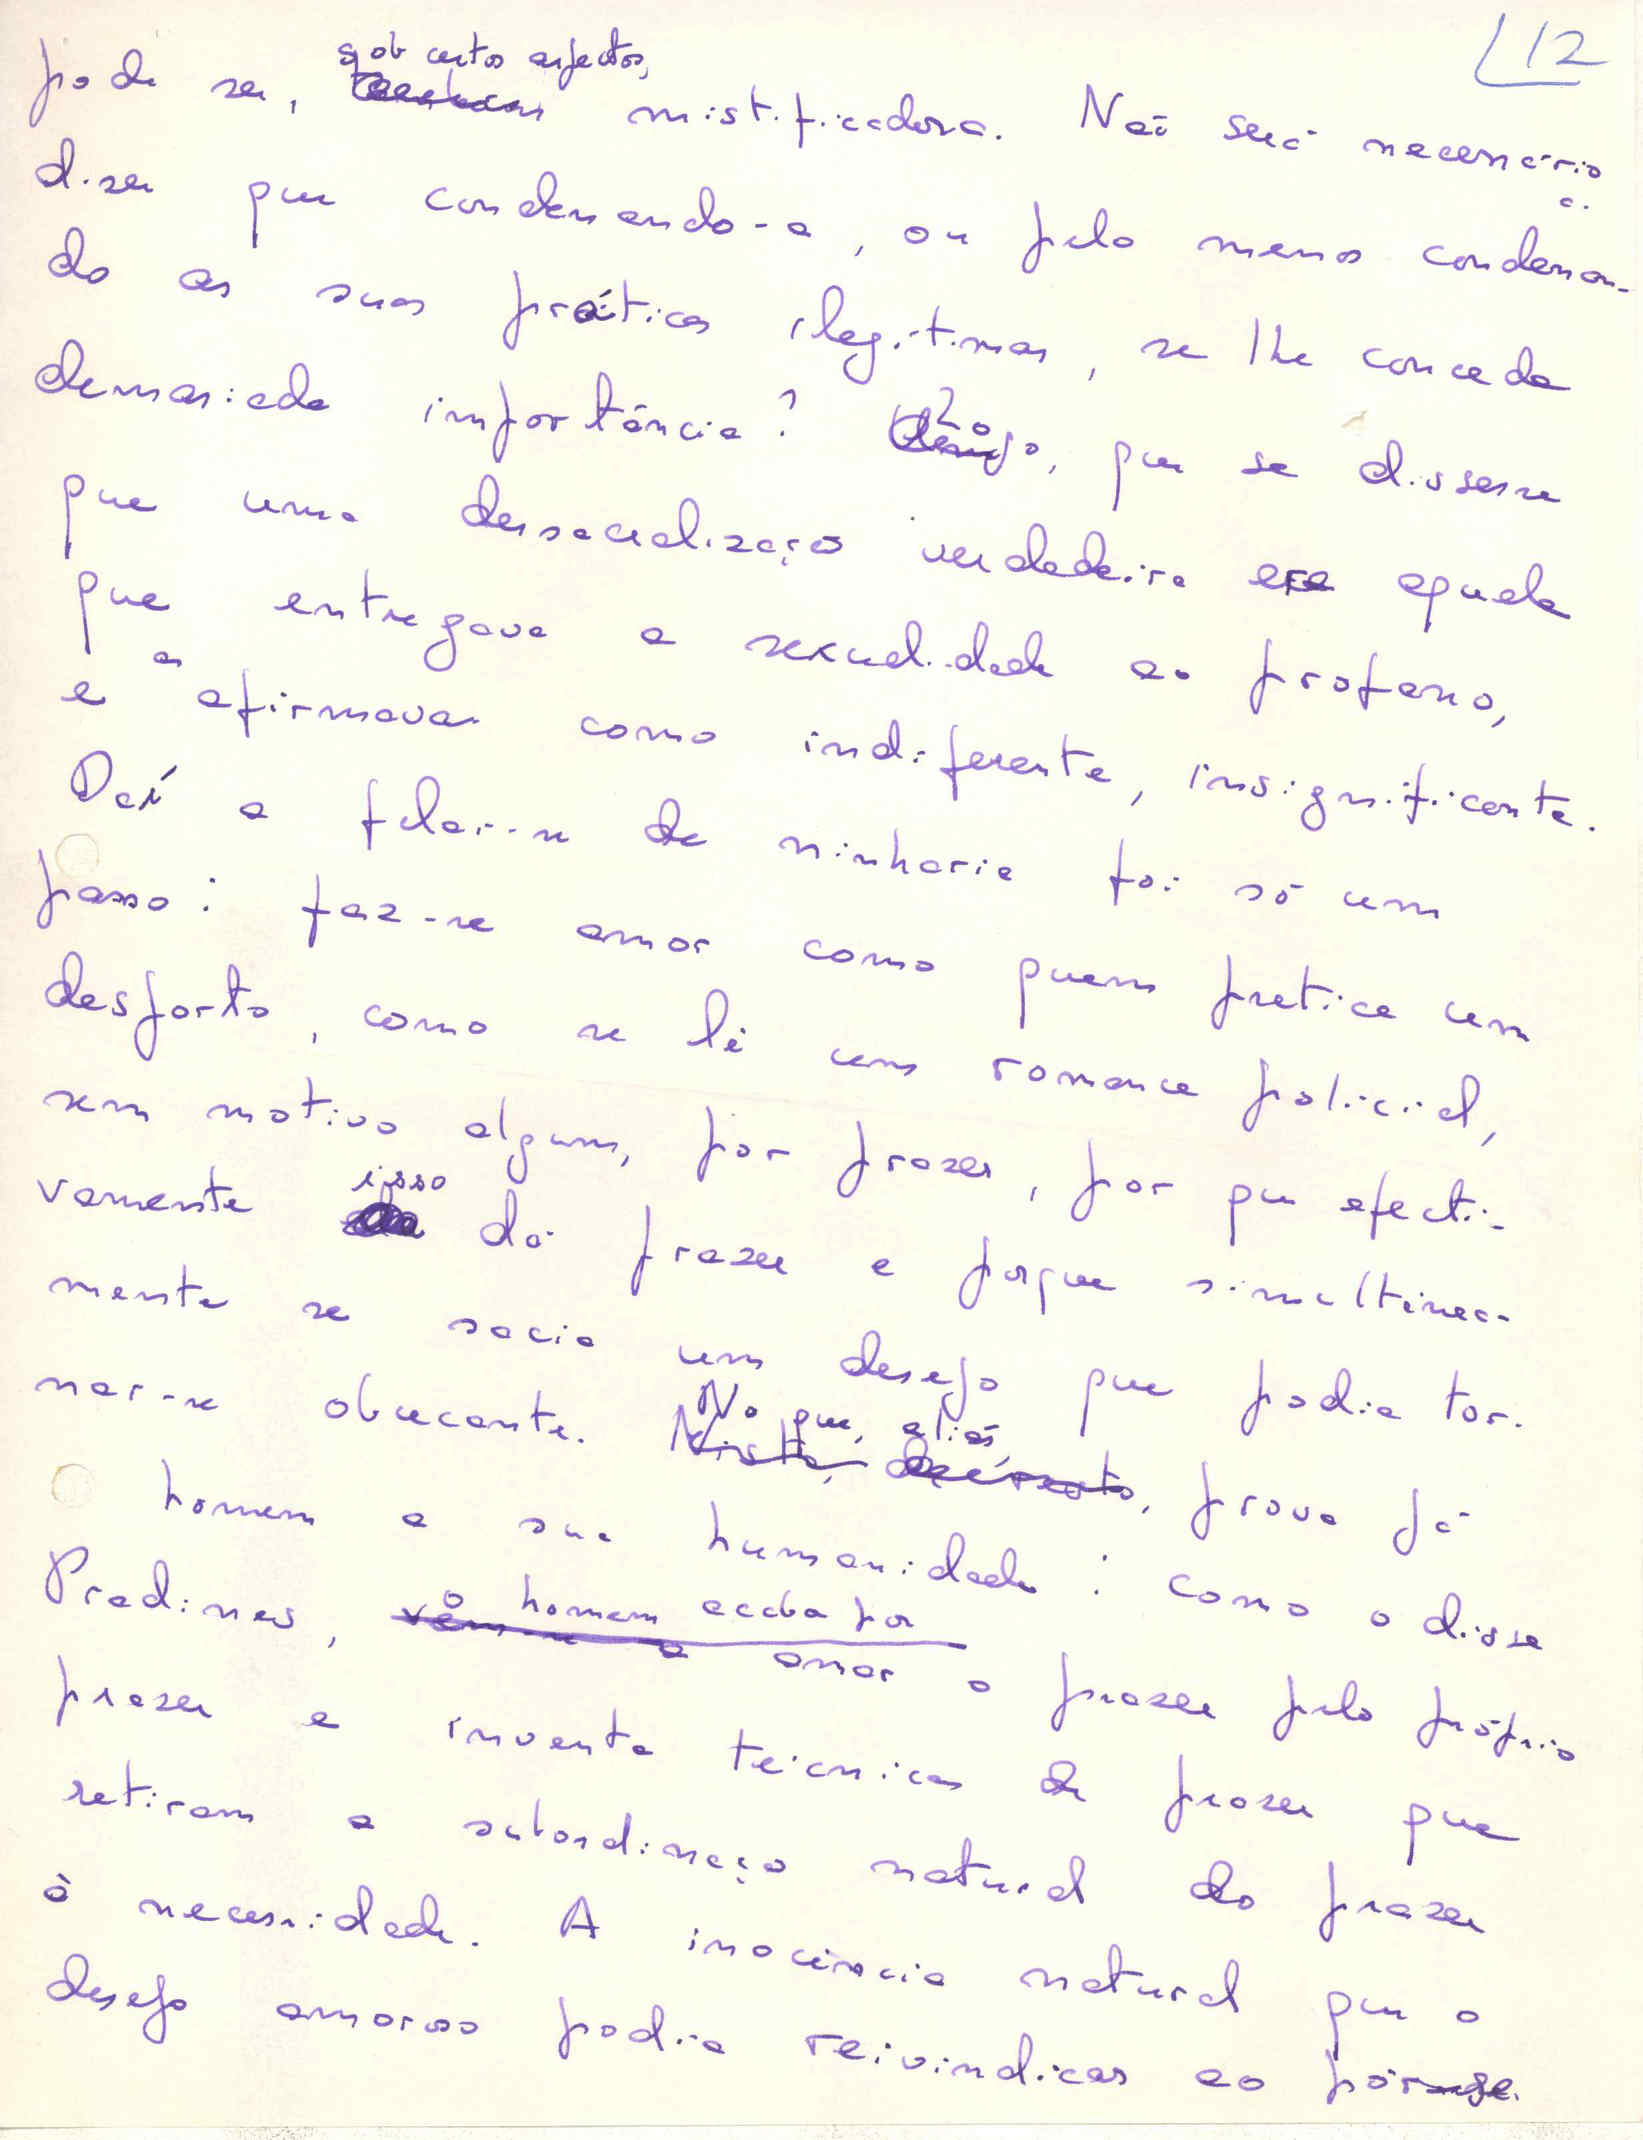 12
sob certos aspectos,
pode ser, mistificadora. Não será necessário
dizer que condenando-a, ou pelo menos condenan-
do as suas práticas ilegítimas, se lhe conceda
demasiada importância? Logo, que se dissesse
que uma dessacralização verdadeira era aquela
que entregava a sexualidade ao profano,
e a afirmava como indiferente, insignificante.
Daí a falar-se de ninharia foi só um
passo: faz-se amor como quem pratica um
desporto, como se lê um romance policial,
sem motivo algum, por prazer, por que efecti-
vamente isso dá prazer e porque simultânea-
mente se sacia um desejo que podia tor-
nar-se obcecante. No que, aliás, prova já
homem a sua humanidade: como o disse
Pradines, o homem acaba por
amar o prazer pelo próprio
prazer e inventa técnicas de prazer que
retiram a subordinação natural do prazer
à necessidade. A inocência natural que o
desejo amoroso podia reivindicar ao